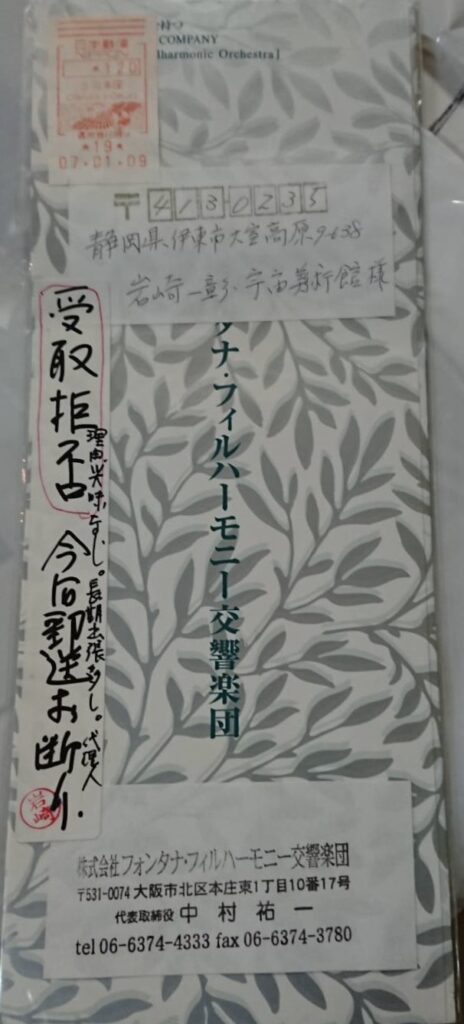 を持つ
COMPANY
lharmonic Orchestra」
120
*19*
07.01.09
〒4130235
静岡県伊東市大室高原9-638
岩崎一彰・宇宙美術館様
タナ・フィルハーモニー交響楽団
受取拒否
理由、興味なし。長期出張多し。代理人
今后郵送お断り.
岩崎
株式会社フォンタナ・フィルハーモニー交響楽団
〒531-0074 大阪市北区本庄東1丁目10番17号
代表取締役 中村祐一
tel 06-6374-4333 fax 06-6374-3780